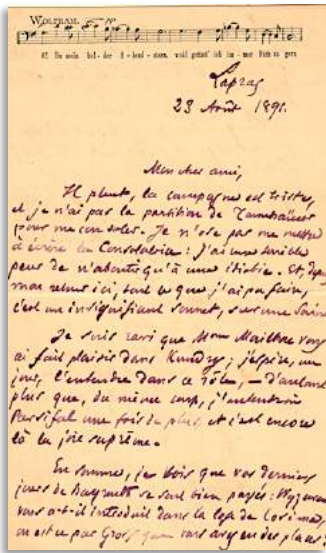 WOLFRAM.
O! Du mein hol-der A-bend-stern, wohl grüsst' ich im-mer Dich so gern
Lapras
23 Août 1891.
Mon cher ami,
Il pleut, la campagne est triste,
et je n'ai pas la partition de Tannhäuser
pour me consoler. Je n'ose pas me mettre
à écrire la Consolatrice : j'ai une terrible
peur de n'aboutir qu'à une idiotie. Et, depuis
mon retour ici, tout ce que j'ai pu faire,
c'est un insignifiant sonnet, sur une
Je suis ravi que Mme Materna vous
ai fait plaisir dans Kundry ; j'espère, un
jour, l'entendre dans ce rôle, – d'autant
plus que, du même coup, j'entendrais
Parsifal une fois de plus, et c'est encore
là la joie suprême.
En somme, je vois que vos derniers
jours de Bayreuth se sont bien passés :
vous a-t-il introduit dans la loge de Cosima,
ou est-ce par Gross que vous avez eu des places